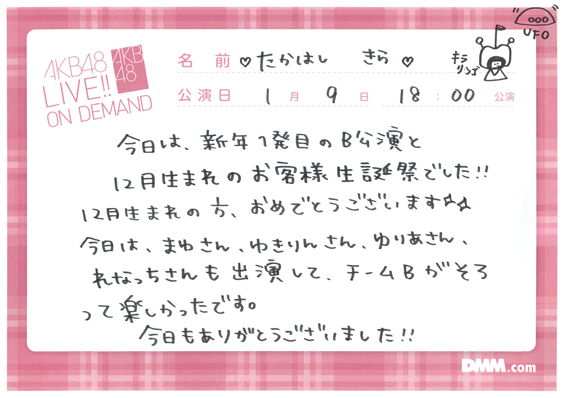 UFO
AKB48
LIVE!!
ON DEMAND
AKB
48
名前 ♡たかはし きら♡
キラ
リンゴ
公演日 1月9日 18:00 公演
今日は、新年1発目のB公演と
12月生まれのお客様生誕祭でした!!
12月生まれの方、おめでとうございます☆☆
今日は、まゆさん、ゆきりんさん、ゆりあさん、
れなっちさんも出演して、チームBがそろ
って楽しかったです。
今日もありがとうございました!!
DMM.com